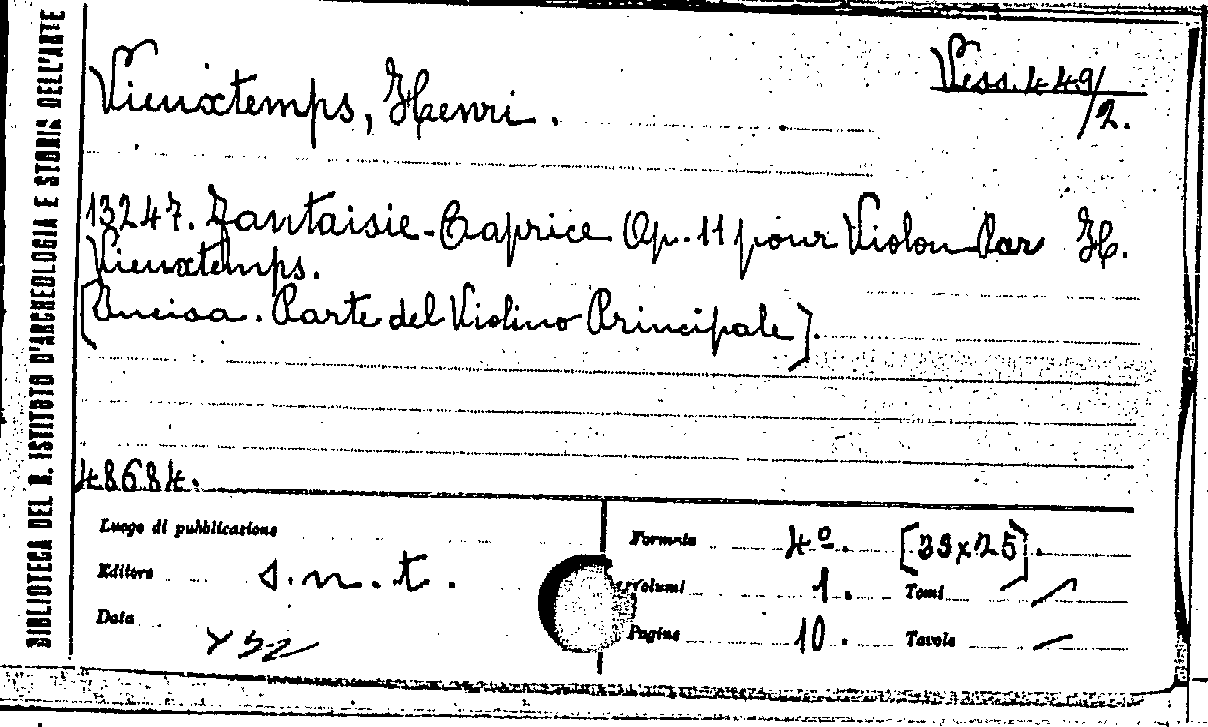 BIBLIOTECA DEL R. ISTITUTO D'ARCHEOLOGIA E STORIA DELL'ARTE
Vieuxtemps, Henri.
Vess. 449/2.
13247. Fantaisie-Caprice Op. 11 pour Violon Par H.
Vieuxtemps.
[Incisa. Parte del Violino Principale].
48684.
Luogo di pubblicazione
Editore s.n.t.
Data
Formato 4º. [33x25].
Volumi 1. Tomi /
Pagine 10. Tavole /